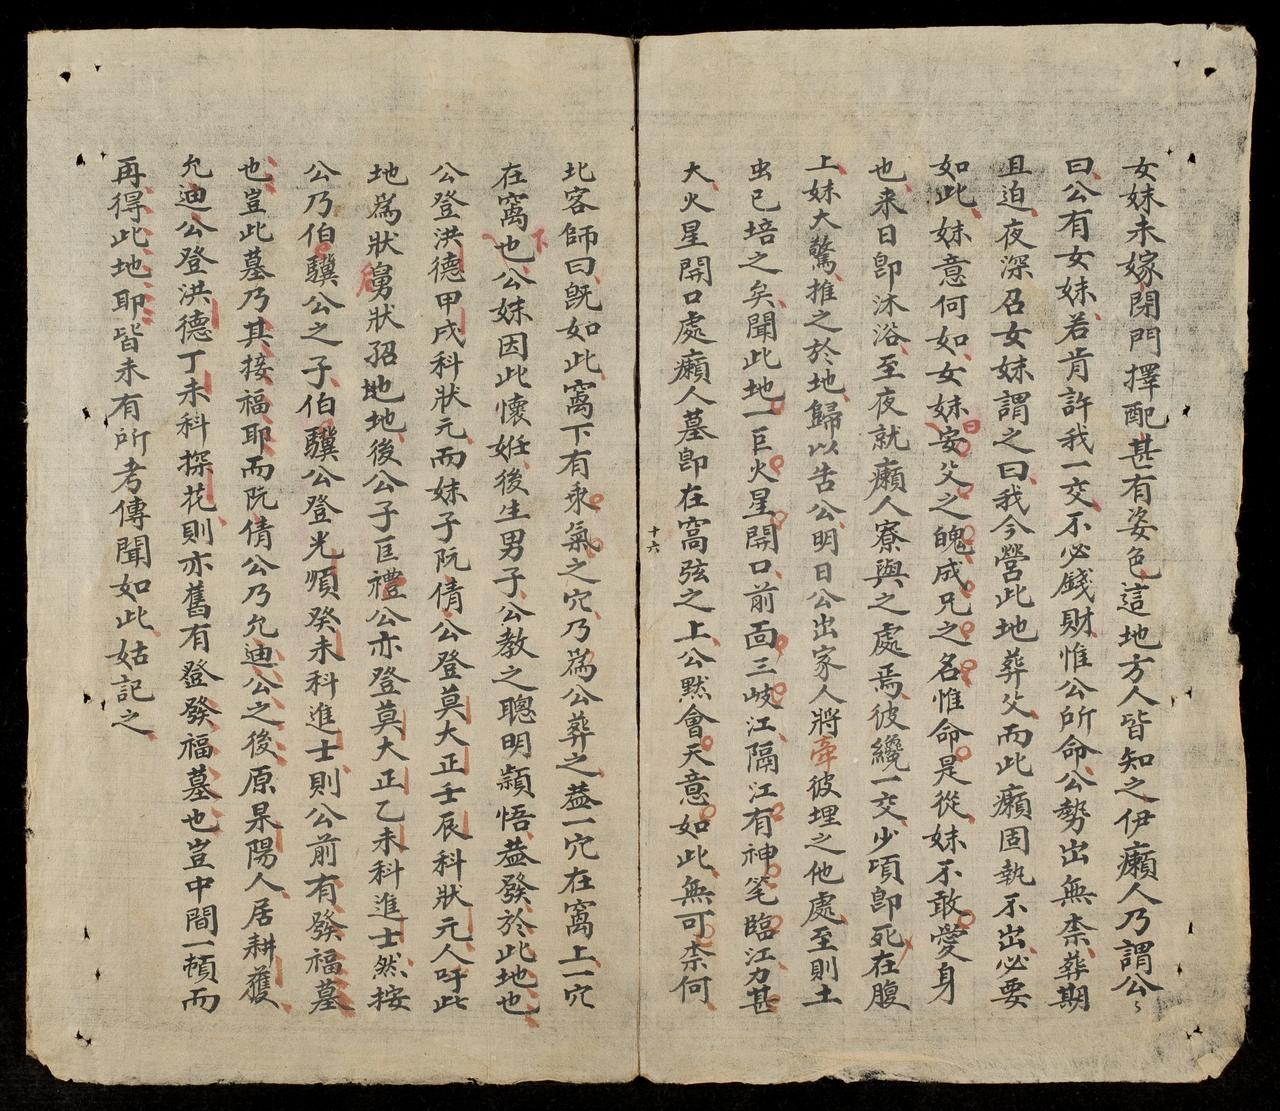 女妹未嫁閉門擇配甚有姿色這地方人皆知之伊癩人乃謂公〻
曰公有女妹若肯許我一交不必錢財惟公所命公勢出無柰葬期
且迫夜深召女妹謂之曰我今營此地葬父而此癩固執不出必要
如此妹意何如女妹曰安父之魄成兄之名惟命是從妹不敢愛身
也來日卽沐浴至夜就癩人寮與之處焉彼纔一交少頃卽死在腹
上妹大驚推之於地歸以告公明日公出家人將牽彼埋之他處至則土
虫已培之矣聞此地一巨火星開口前面三岐江隔江有神笔臨江力甚
大火星開口處癩人墓卽在窩弦之上公黙會天意如此無可柰何
十六
北客師曰既如此窩下有乘氣之穴乃爲公葬之葢一穴在窩上一穴
在窩下也公妹因此懷姙後生男子公教之聰明穎悟葢發於此地也
公登洪德甲戌科狀元而妹子阮倩公登莫大正壬辰科狀元人呼此
地爲狀舅狀𡥵地地後公子匡禮公亦登莫大正乙未科進士然按
公乃伯驥公之子伯驥公登光順癸未科進士則公前有發福墓
也豈此墓乃其接福耶而阮倩公乃允迪公之後原杲陽人居耕獲
允迪公登洪德丁未科探花則亦舊有發發福墓也豈中間一頓而
再得此地耶皆未有所考傳聞如此姑記之